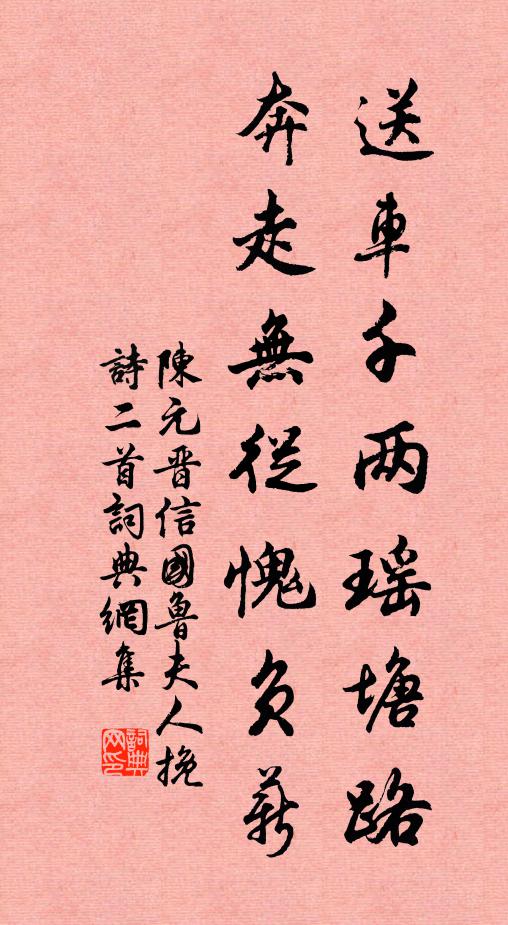 送車千两瑶塘路
奔走無從愧負薪
陳元晋信國魯夫人挽
詩二首詞典網集
詞典
网印